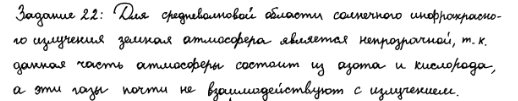 Задание 22: Для средневолновой области солнечного инфракрасно-
го излучения земная атмосфера является непрозрачной, т.к.
данная часть атмосферы состоит из азота и кислорода,
а эти газы почти не взаимодействуют с излучением.